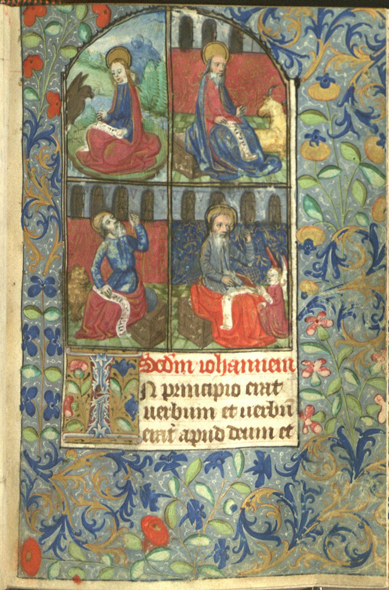 Scdm iohannem
In principio erat
uerbum et uerbu
erat apud deum et